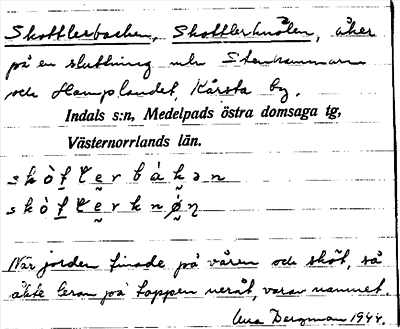 Skottlerbacken, Skottlerknölen, åker
på en sluttning mln Stenhammarn
och Hamplandet, Kårsta by.
Indals s:n, Medelpads östra domsaga tg,
Västernorrlands län.
När jorden tinade på våren och sköt, så
åkte leran på toppen neråt, varav namnet.
Bergman 1944.